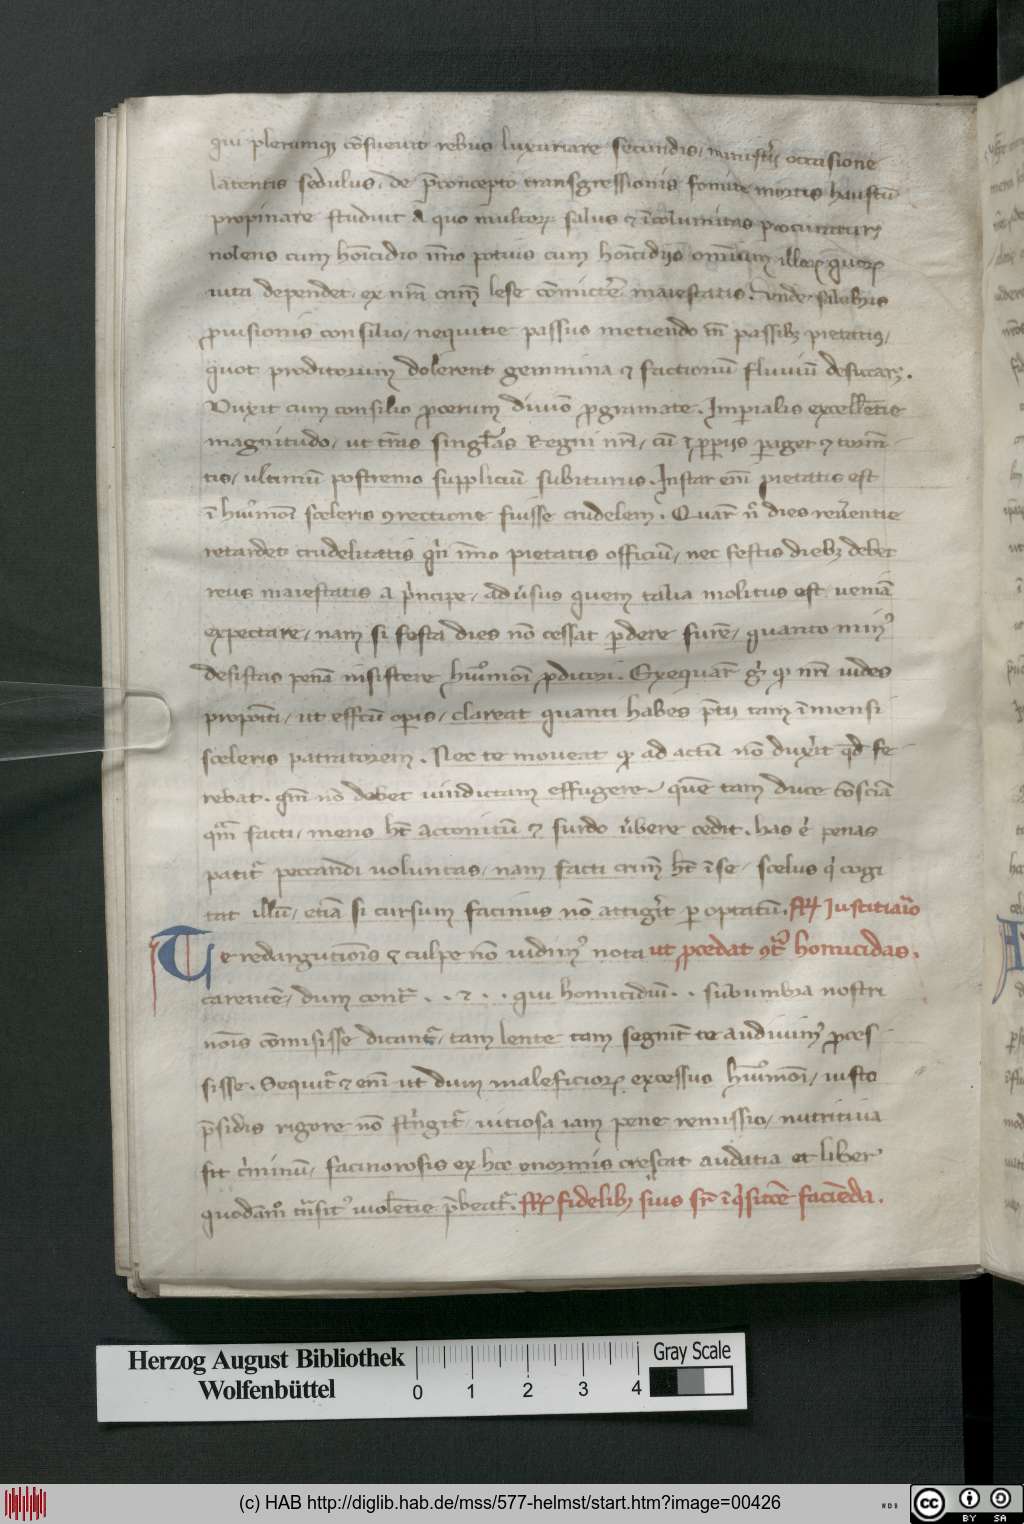 qui plerumqꝫ cōsueuit rebus luxuriare secundis / ministr̄ occasione
latentis sedulus. de p̄concepto transgressionis fomite mortis haustū
propinare studuit a quo multoꝝ salus ⁊ īcolumitas
nolens cum hoīcidio īmo potius cum hoīcidijs omnium illoꝝ quoꝝ
uita dependet. ex nr̄i crim̄ lese cōmictē maiestatis. Vnde
ꝓuisionis consilio / nequitie passus metiendo passibꝫ pietatis /
quot proditorum dolerent gemmina ⁊ factionū fluuiū desiccar̄.
Duxit cum consilio ꝓcerum diuīo ꝓgramate. Imperialis excell̄etie
magnitudo / ut tr̄as singl̄as Regni nr̄i / cū ꝑaget ⁊ torm̄
tis / ultimū postremo suppliciū subiturus. Instar eni pietatis est
ī huiꝰmōi sceleris ꝯrectione fuisse crudelem. Quar̄ n̄ dies reu̓entie
retardet crudelitatis qn̄ īmo pietatis officiū / nec festis diebꝫ debet
reus maiestatis a pͥncipe / adu̓sus quem talia molitus est ueniā
expectare / nam si festa dies nō cessat ꝑdere furē / quanto minꝰ
desistas penā insistere huiꝰmōi ꝓditori. Exequar̄ gͥ qꝫ nr̄i uides
propōiti / ut effctū oꝑis / clareat quanti habes p̄tij tam īmensi
sceleris patratorem. Nec te moueat qꝫ ad actū nō duxit qd̄ fe
rebat. qm̄ nō debet uindictam effugere / quē tam duce cōsciā
qm̄ facti / mens ht̄ attonitū ⁊ surdo u̓bere cedit. has ē penas
patit̄ peccandi uoluntas / nam facti crim̄ ht̄ ī se / scelus qͥ cogi
tat illū / etiā si cursum facinus nō attigit ꝑ optatū. Justitiar̄io
Te redargutiōis ⁊ culpe nō uidimꝰ nota ut ꝓcedat ꝯtͣ homicidas.
carentē / dum cont̄ . . ⁊ . . qui homicidiū . . sub umbra nostri
nōis cōmisisse dicant̄ / tam lente tam segnit̄ te audiuimꝰ ꝓces
sisse. Sequit̄ ⁊ eni ut dum maleficioꝝ excessus huiꝰmōi / iusto
p̄sidis rigore nō stͥngit̄ / uitiosa iam pene remissio / nutritiua
sit cͥminū / facinorosis ex hoc enormis crescat audatia et liber
quodāmō trāsitꝰ uiol̄etie p̄beat̄. fidelibꝫ suis sr̄ īqͥsitōe faciēda.
Herzog August Bibliothek
Wolfenbüttel
0 1 2 3 4
Gray Scale
(c) HAB http://diglib.hab.de/mss/577-helmst/start.htm?image=00426
WDB
cc BY SA